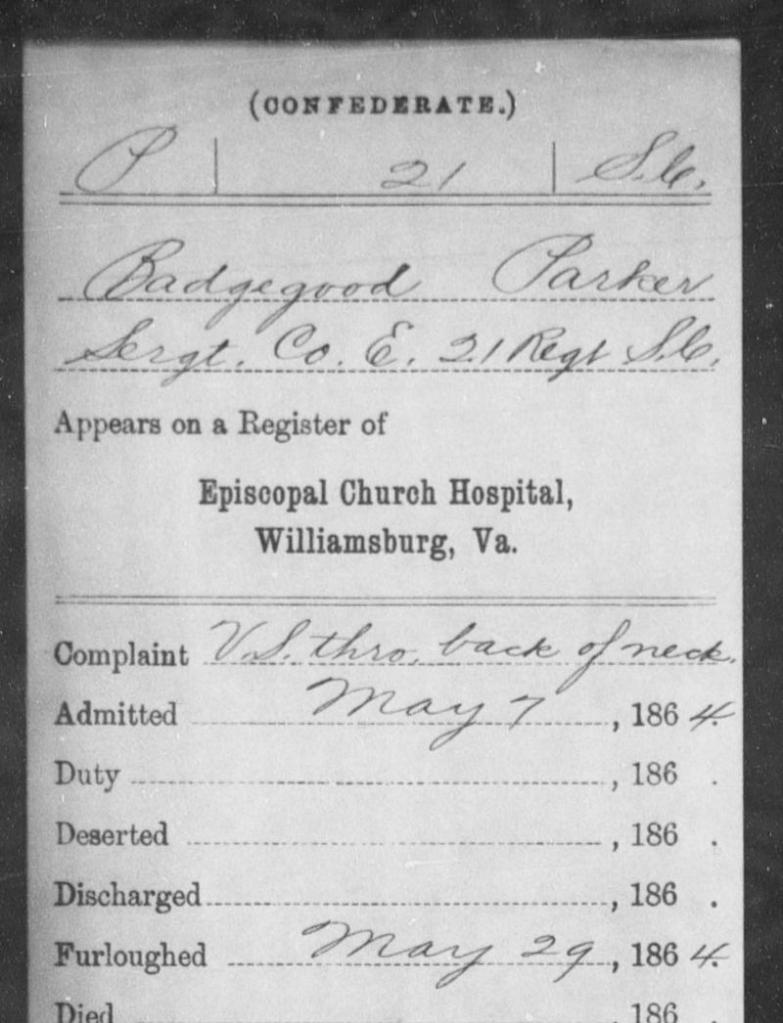 (CONFEDERATE.)
P 21 S.C.
Badgegood Parker
Sergt. Co. E. 21 Regt S.C.
Appears on a Register of
Episcopal Church Hospital,
Williamsburg, Va.
Complaint V.S. thro. back of neck.
Admitted May 7, 1864.
Duty , 186 .
Deserted , 186 .
Discharged , 186 .
Furloughed May 29, 1864.
Died , 186